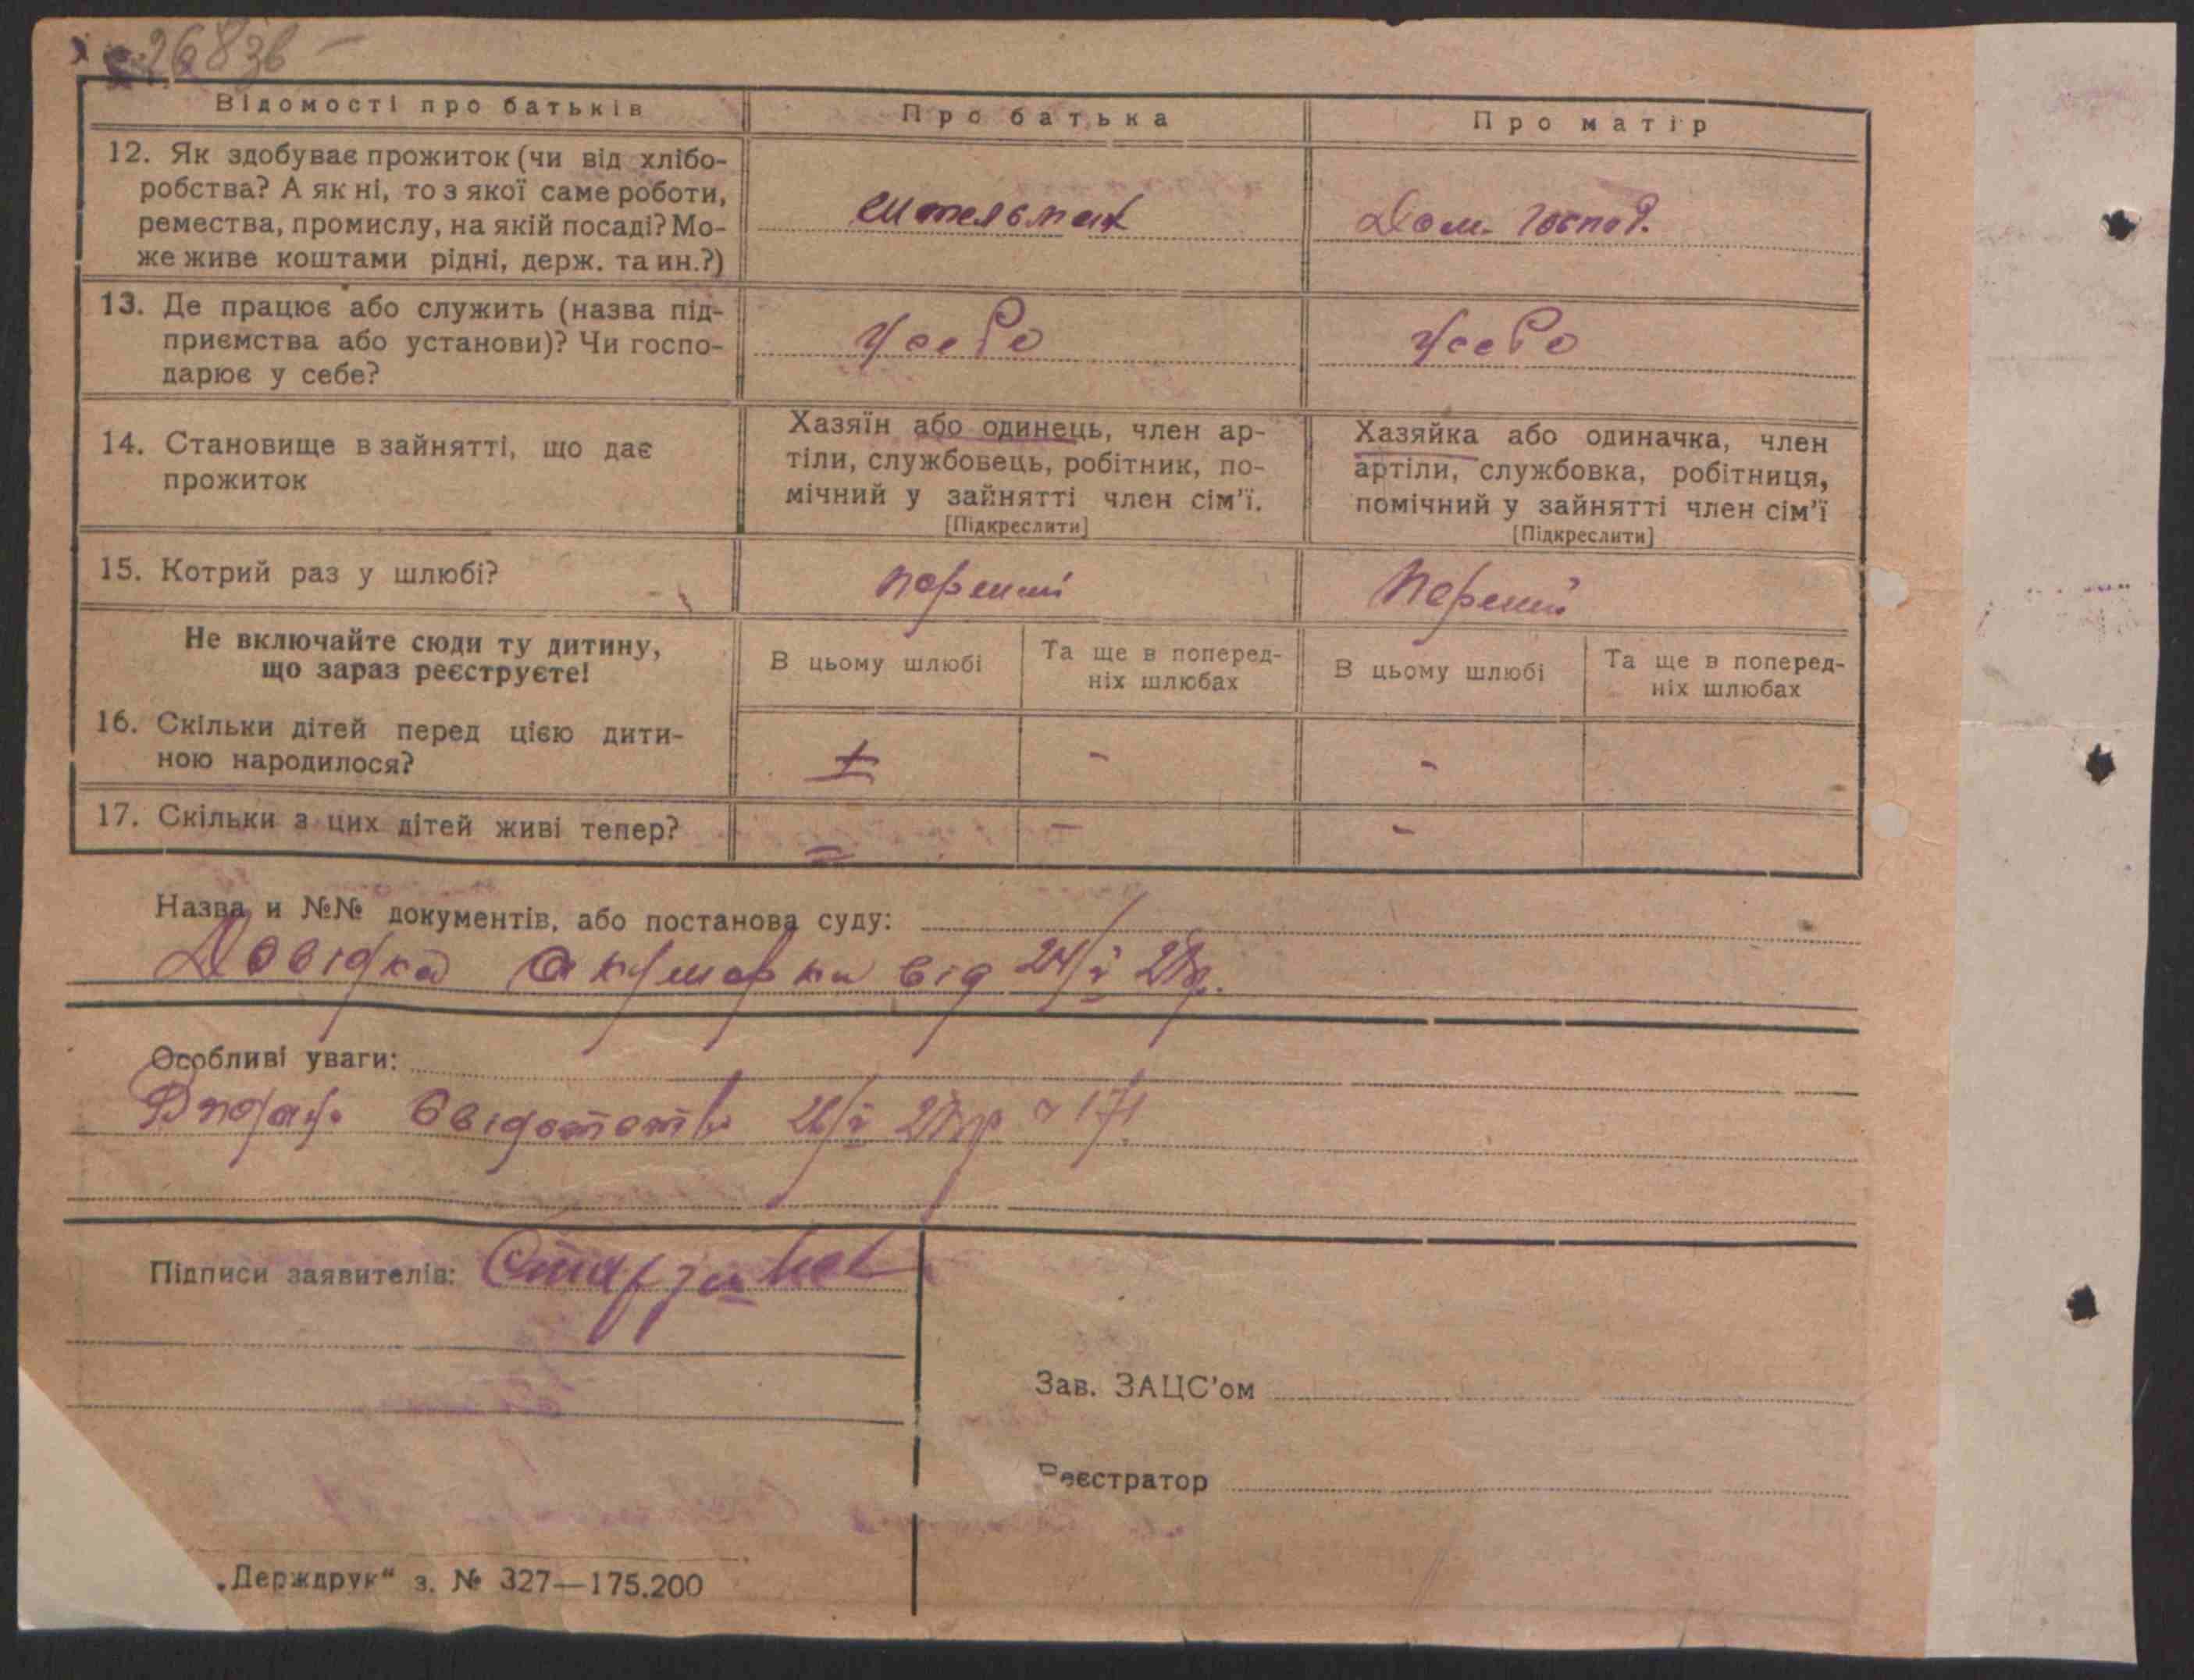 26836 –
Відомості про батьків
Про батька
Про матір
12. Як здобуває прожиток (чи від хлібо-
робства? А як ні, то з якої саме роботи,
ремества, промислу, на якій посаді? Мо-
же живе коштами рідні, держ. та ин.?)
Дом. господ.
13. Де працює або служить (назва під-
приємства або установи)? Чи госпо-
дарює у себе?
14. Становище в зайнятті, що дає
прожиток
Хазяїн або одинець, член ар-
тіли, службовець, робітник, по-
мічний у зайнятті член сім'ї.
[Підкреслити]
Хазяйка або одиначка, член
артіли, службовка, робітниця,
помічний у зайнятті член сім'ї
[Підкреслити]
15. Котрий раз у шлюбі?
Не включайте сюди ту дитину,
що зараз реєструєте!
В цьому шлюбі
Та ще в поперед-
ніх шлюбах
В цьому шлюбі
Та ще в поперед-
ніх шлюбах
16. Скільки дітей перед цією дити-
ною народилося?
-
-
17. Скільки з цих дітей живі тепер?
-
-
Назва и №№ документів, або постанова суду:
Довідка акушерки від 24/V 28р.
Особливі уваги:
171
Підписи заявителів:
Зав. ЗАЦС'ом
Реєстратор
„Держдрук“ з. № 327—175.200